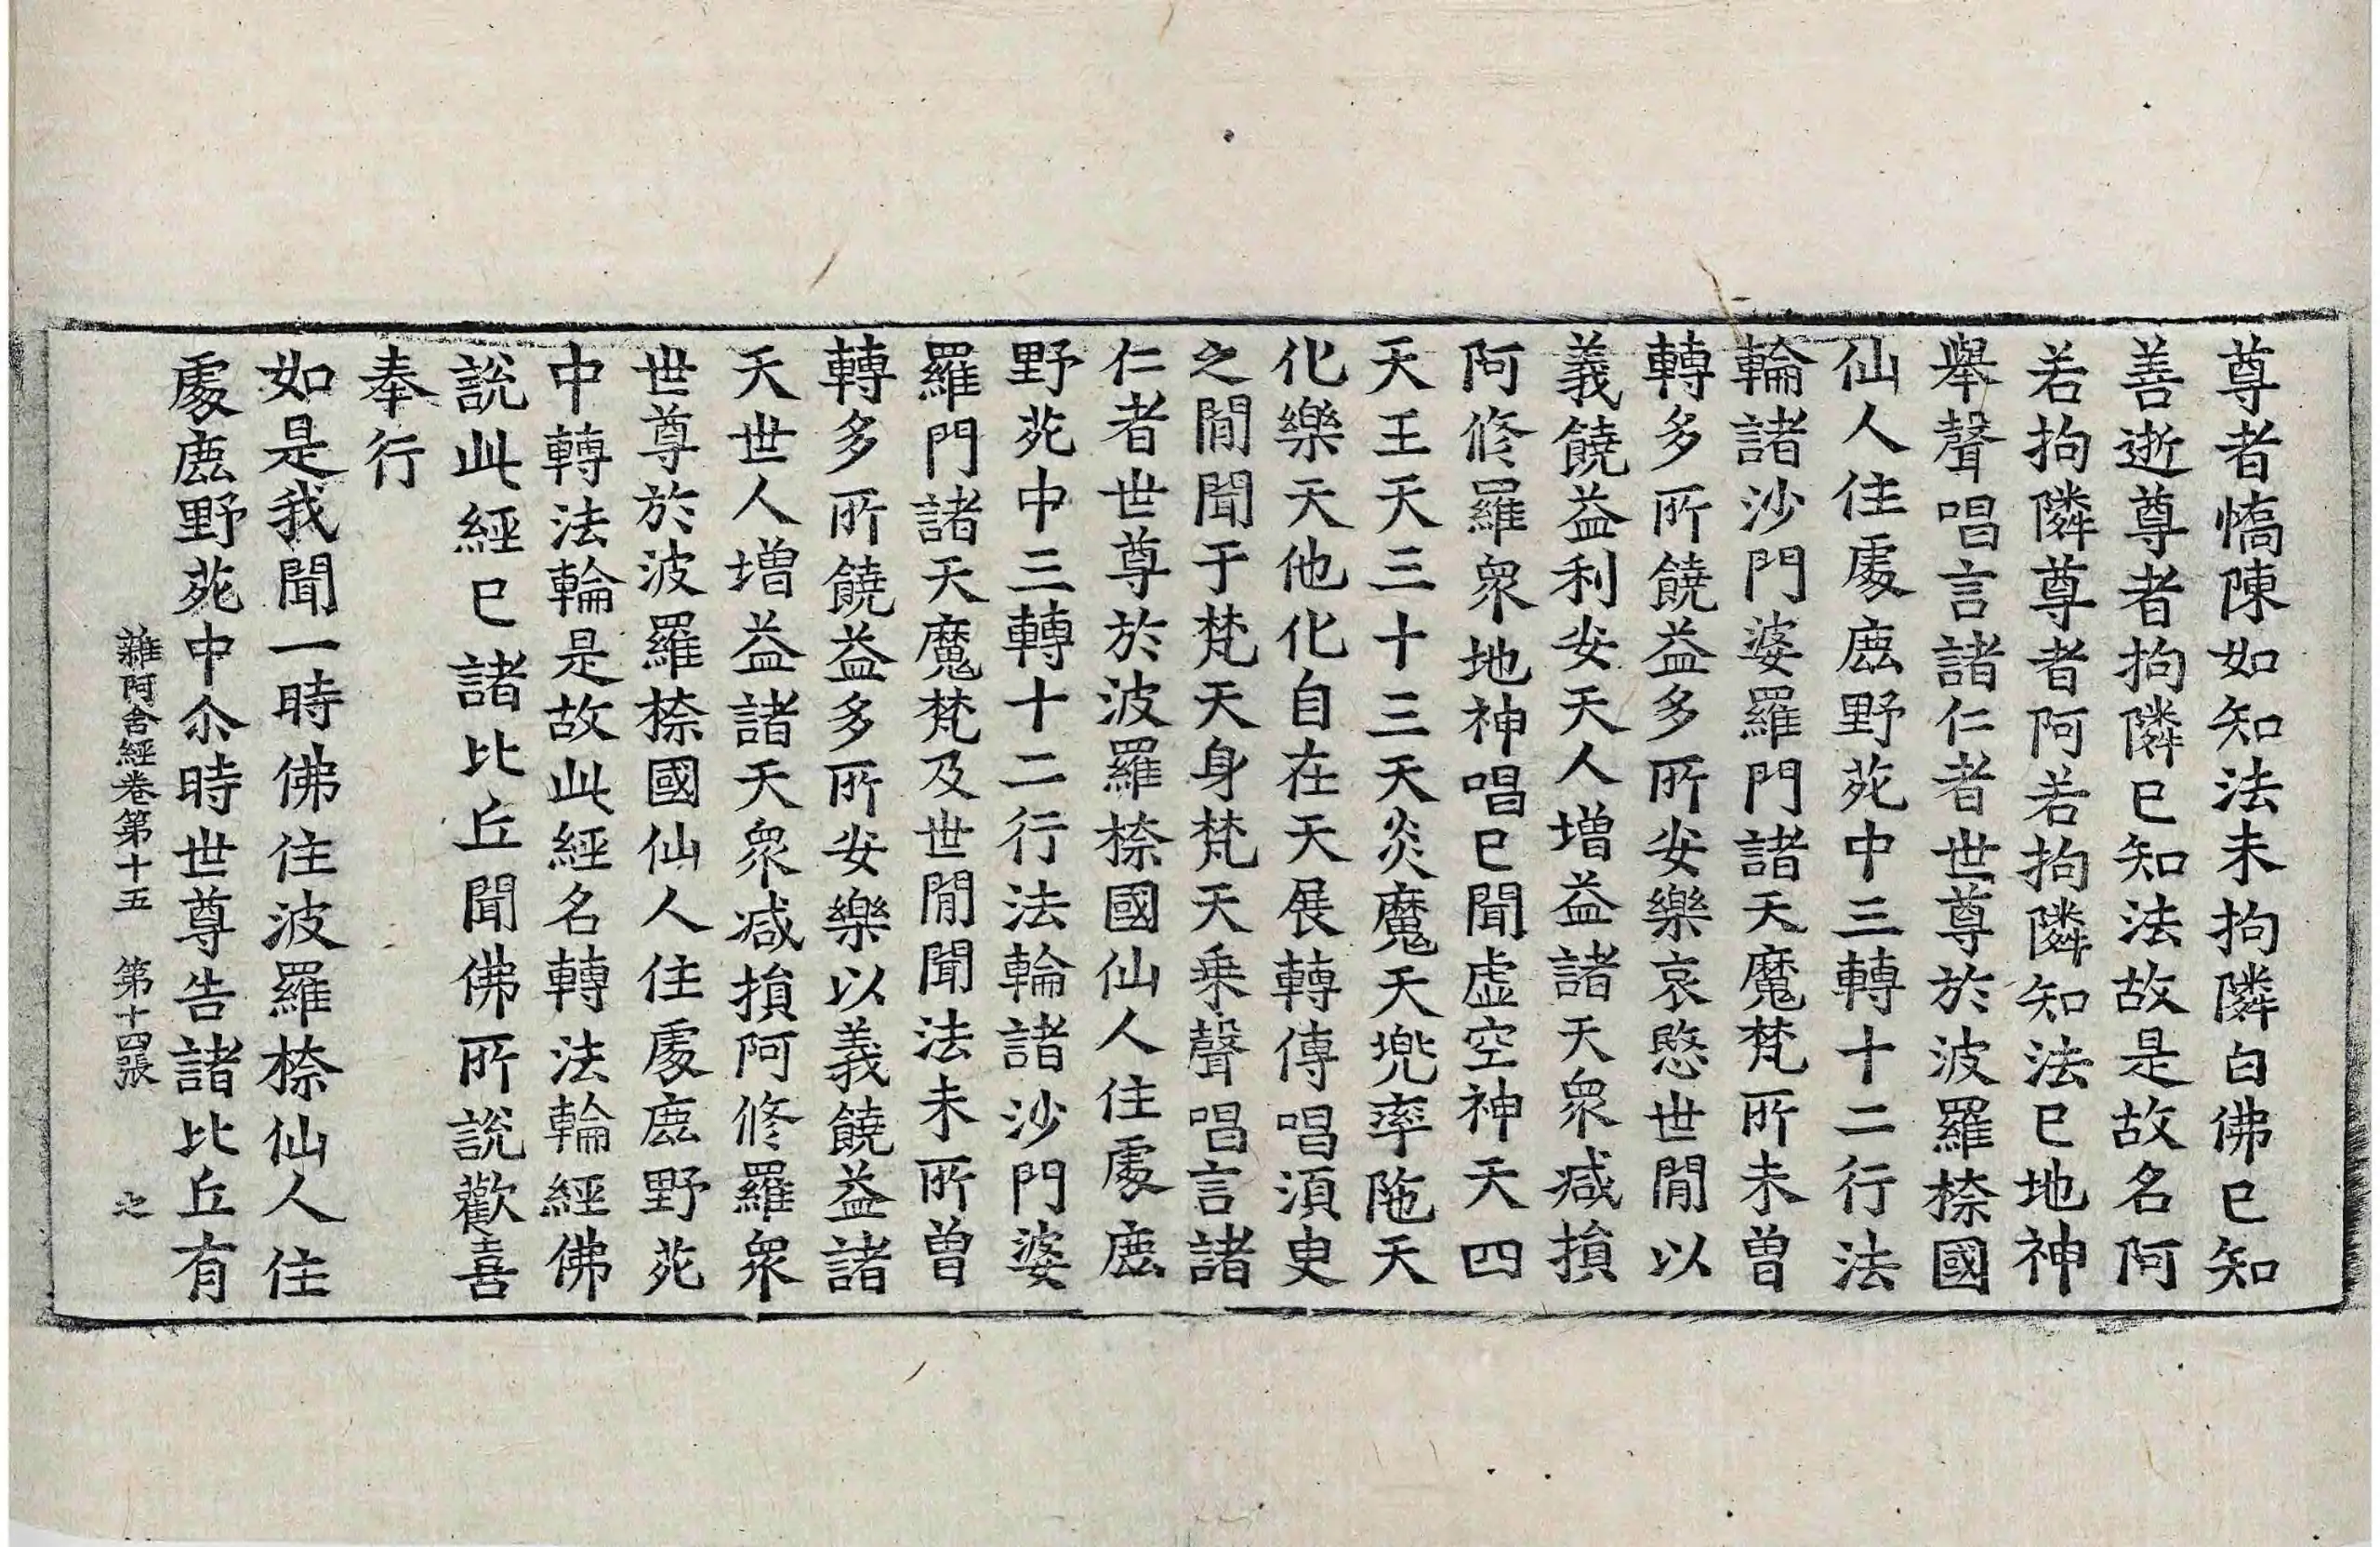 尊者憍陳如知法未拘隣白佛已知
善逝尊者拘隣已知法故是故名阿
若拘隣尊者阿若拘隣知法已地神
舉聲唱言諸仁者世尊於波羅㮈國
仙人住處鹿野苑中三轉十二行法
輪諸沙門婆羅門諸天魔梵所未曾
轉多所饒益多所安樂哀愍世閒以
義饒益利安天人增益諸天衆减損
阿修羅衆地神唱已聞虛空神天四
天王天三十三天炎魔天兠率陁天
化樂天他化自在天展轉傳唱湏臾
之閒聞于梵天身梵天乗聲唱言諸
仁者世尊於波羅㮈國仙人住處鹿
野苑中三轉十二行法輪諸沙門婆
羅門諸天魔梵及世閒聞法未所曾
轉多所饒益多所安樂以義饒益諸
天世人增益諸天衆减損阿修羅衆
世尊於波羅㮈國仙人住處鹿野苑
中轉法輪是故此經名轉法輪經佛
說此經已諸比丘聞佛所說歡喜
奉行
如是我聞一時佛住波羅㮈仙人住
處鹿野苑中尒時世尊告諸比丘有
雜阿含經卷第十五 第十四張 之